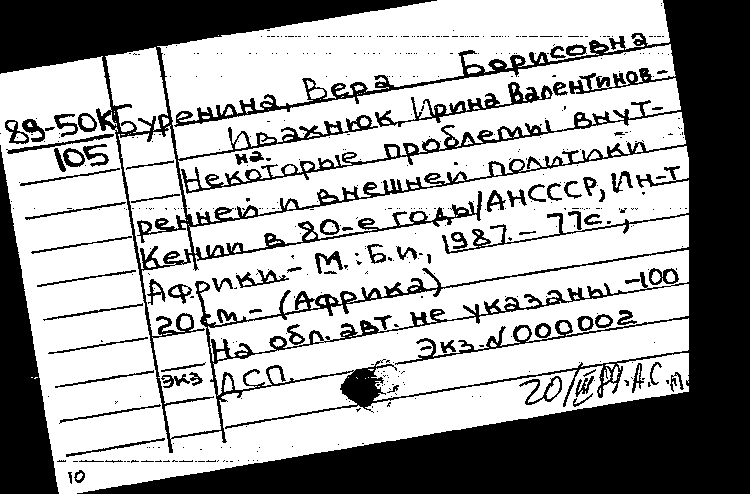 89-50К
105
Буренина, Вера Борисовна
Ивахнюк, Ирина Валентинов-
на.
Некоторые проблемы внут-
ренней и внешней политики
Кении в 80-е годы/АНСССР, Ин-т
Африки.- М.: Б.и., 1987.- 77с.;
20см.- (Африка)
На обл. авт. не указаны.-100
экз ДСП. Экз.N000002
20/III 89. А.С.П.
10